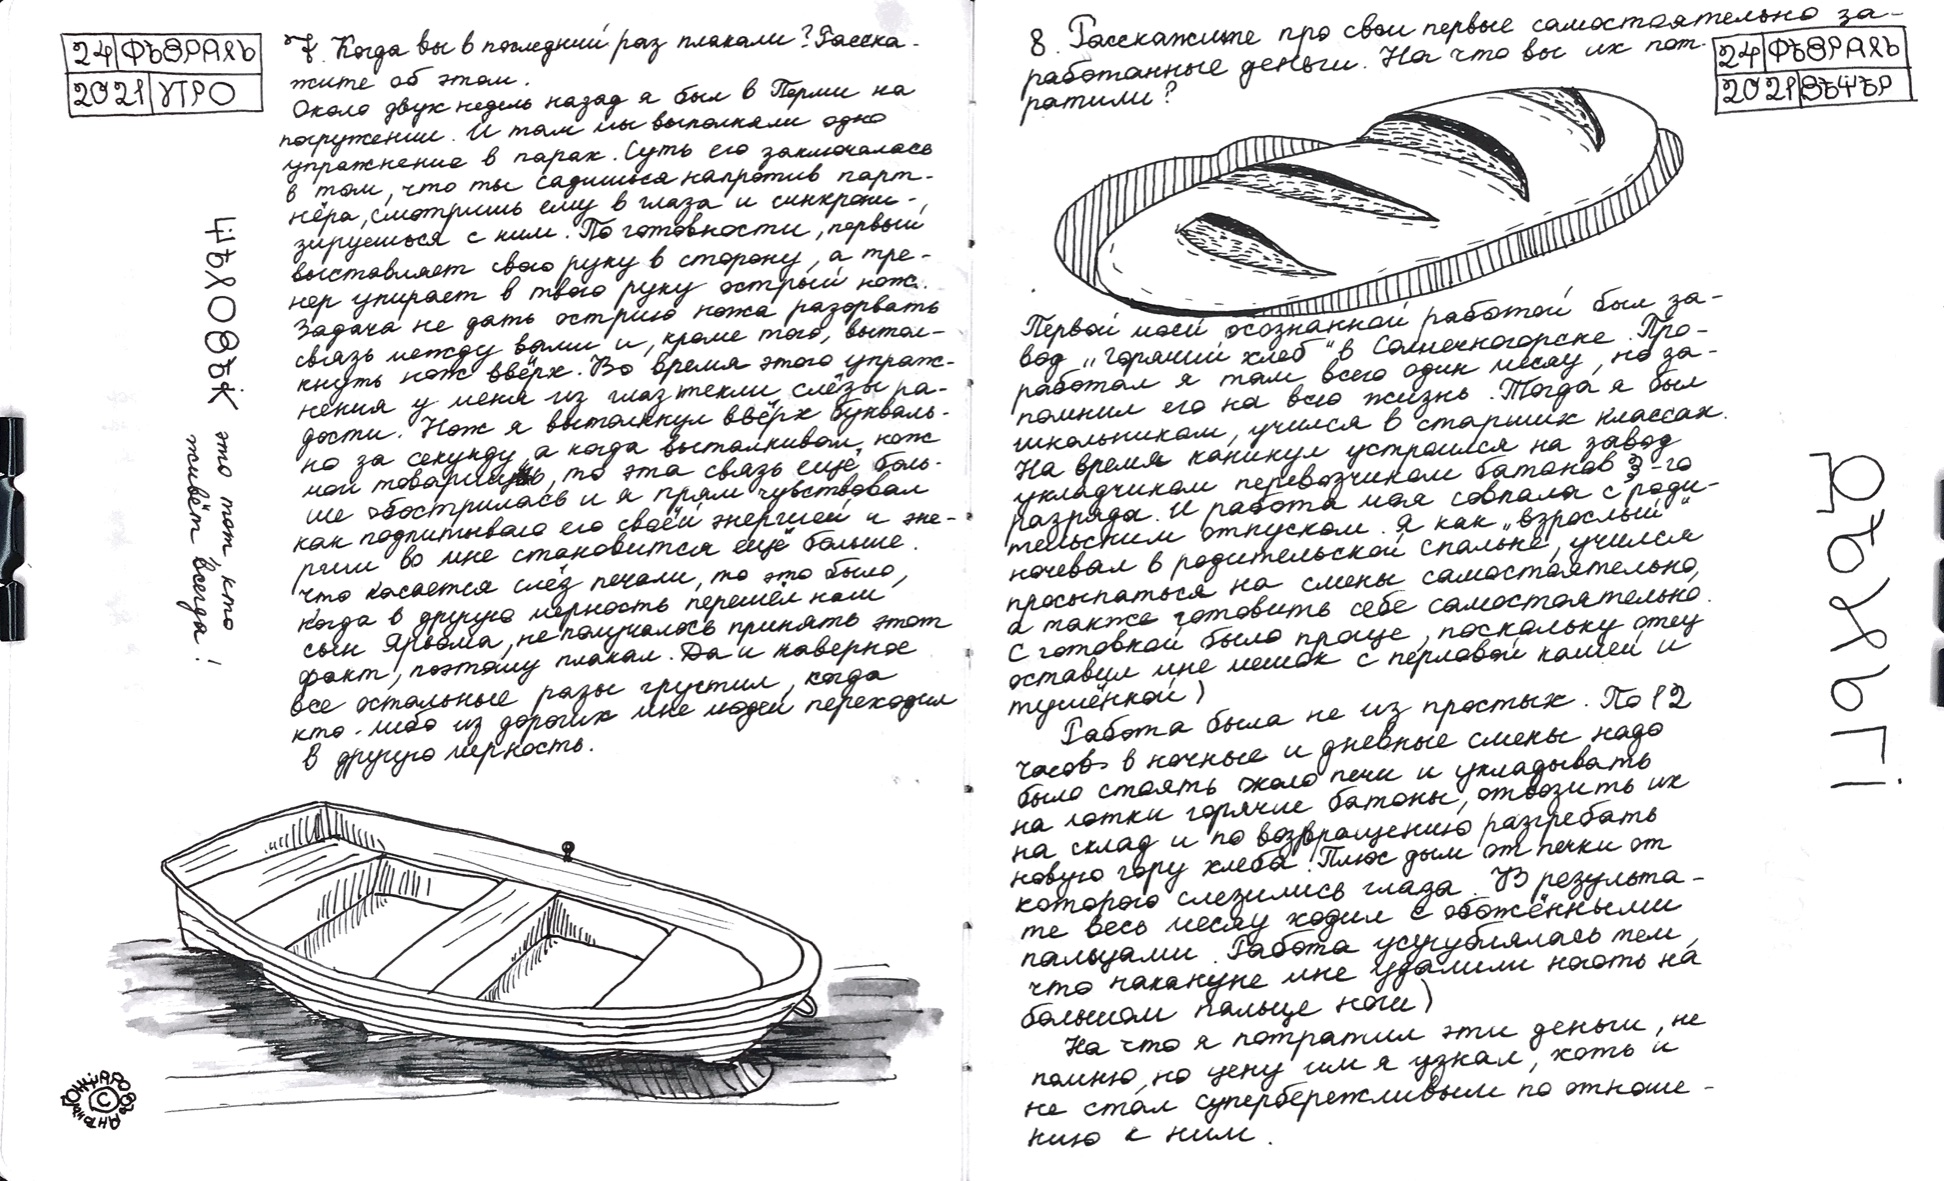 24 ФЪВРАЛЬ
2021 УТРО
7. Когда вы в последний раз плакали? Расска-
жите об этом.
Около двух недель назад я был в Перми на
погружении. И там мы выполняли одно
упражнение в парах. Суть его заключалась
в том, что ты садишься напротив парт-
нёра, смотришь ему в глаза и синхрони-
зируешься с ним. По готовности, первый
выставляет свою руку в сторону, а тре-
нер упирает в твою руку острый нож.
Задача не дать острию ножа разорвать
связь между вами и, кроме того, вытол-
кнуть нож вверх. Во время этого упраж-
нения у меня из глаз текли слёзы ра-
дости. Нож я вытолкнул вверх букваль-
но за секунду, а когда выталкивал нож
мой товарищь, то эта связь ещё боль-
ше обострилась и я прям чувствовал
как подпитываю его своей энергией и эне-
ргии во мне становится ещё больше.
Что касается слёз печали, то это было,
когда в другую мерность перешёл наш
сын Ярѣома, не получалось принять этот
факт, поэтому плакал. Да и наверное
все остальные разы грустил, когда
кто-либо из дорогих мне людей переходил
в другую мерность.
ЧѢЛОВѢК это тот, кто
живёт всегда!
8. Расскажите про свои первые самостоятельно за-
работанные деньги. На что вы их пот-
ратили?
24 ФЪВРАЛЬ
2021 ВѢЧѢР
Первой моей осознанной работой был за-
вод „Горячий хлеб" в Солнечногорске. Про-
работал я там всего один месяц, но за-
помнил его на всю жизнь. Тогда я был
школьником, учился в старших классах.
На время каникул устроился на завод
укладчиком перевозчиком батонов 3-го
разряда. И работа моя совпала с роди-
тельским отпуском. Я как „взрослый"
ночевал в родительской спальне, учился
просыпаться на смены самостоятельно,
а также готовить себе самостоятельно.
С готовкой было проще, поскольку отец
оставил мне мешок с перловой кашей и
тушёнкой)
Работа была не из простых. По 12
часов в ночные и дневные смены надо
было стоять около печи и укладывать
на лотки горячие батоны, отвозить их
на склад и по возвращению разгребать
новую гору хлеба. Плюс дым от печки от
которого слезились глаза. В результа-
те весь месяц ходил с обожёнными
пальцами. Работа усугублялась тем,
что накануне мне удалили ноготь на
большом пальце ноги)
На что я потратил эти деньги, не
помню, но цену им я узнал, хоть и
не стал супербережливым по отноше-
нию к ним.
ДѢЛЬГі